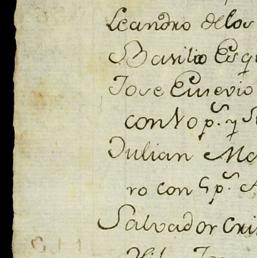 Leandro delos
Basilio Esqu
Jose Eusevio
con No p.s y S
Julian Ma
ro con 4 p.s A
Salvador Cri